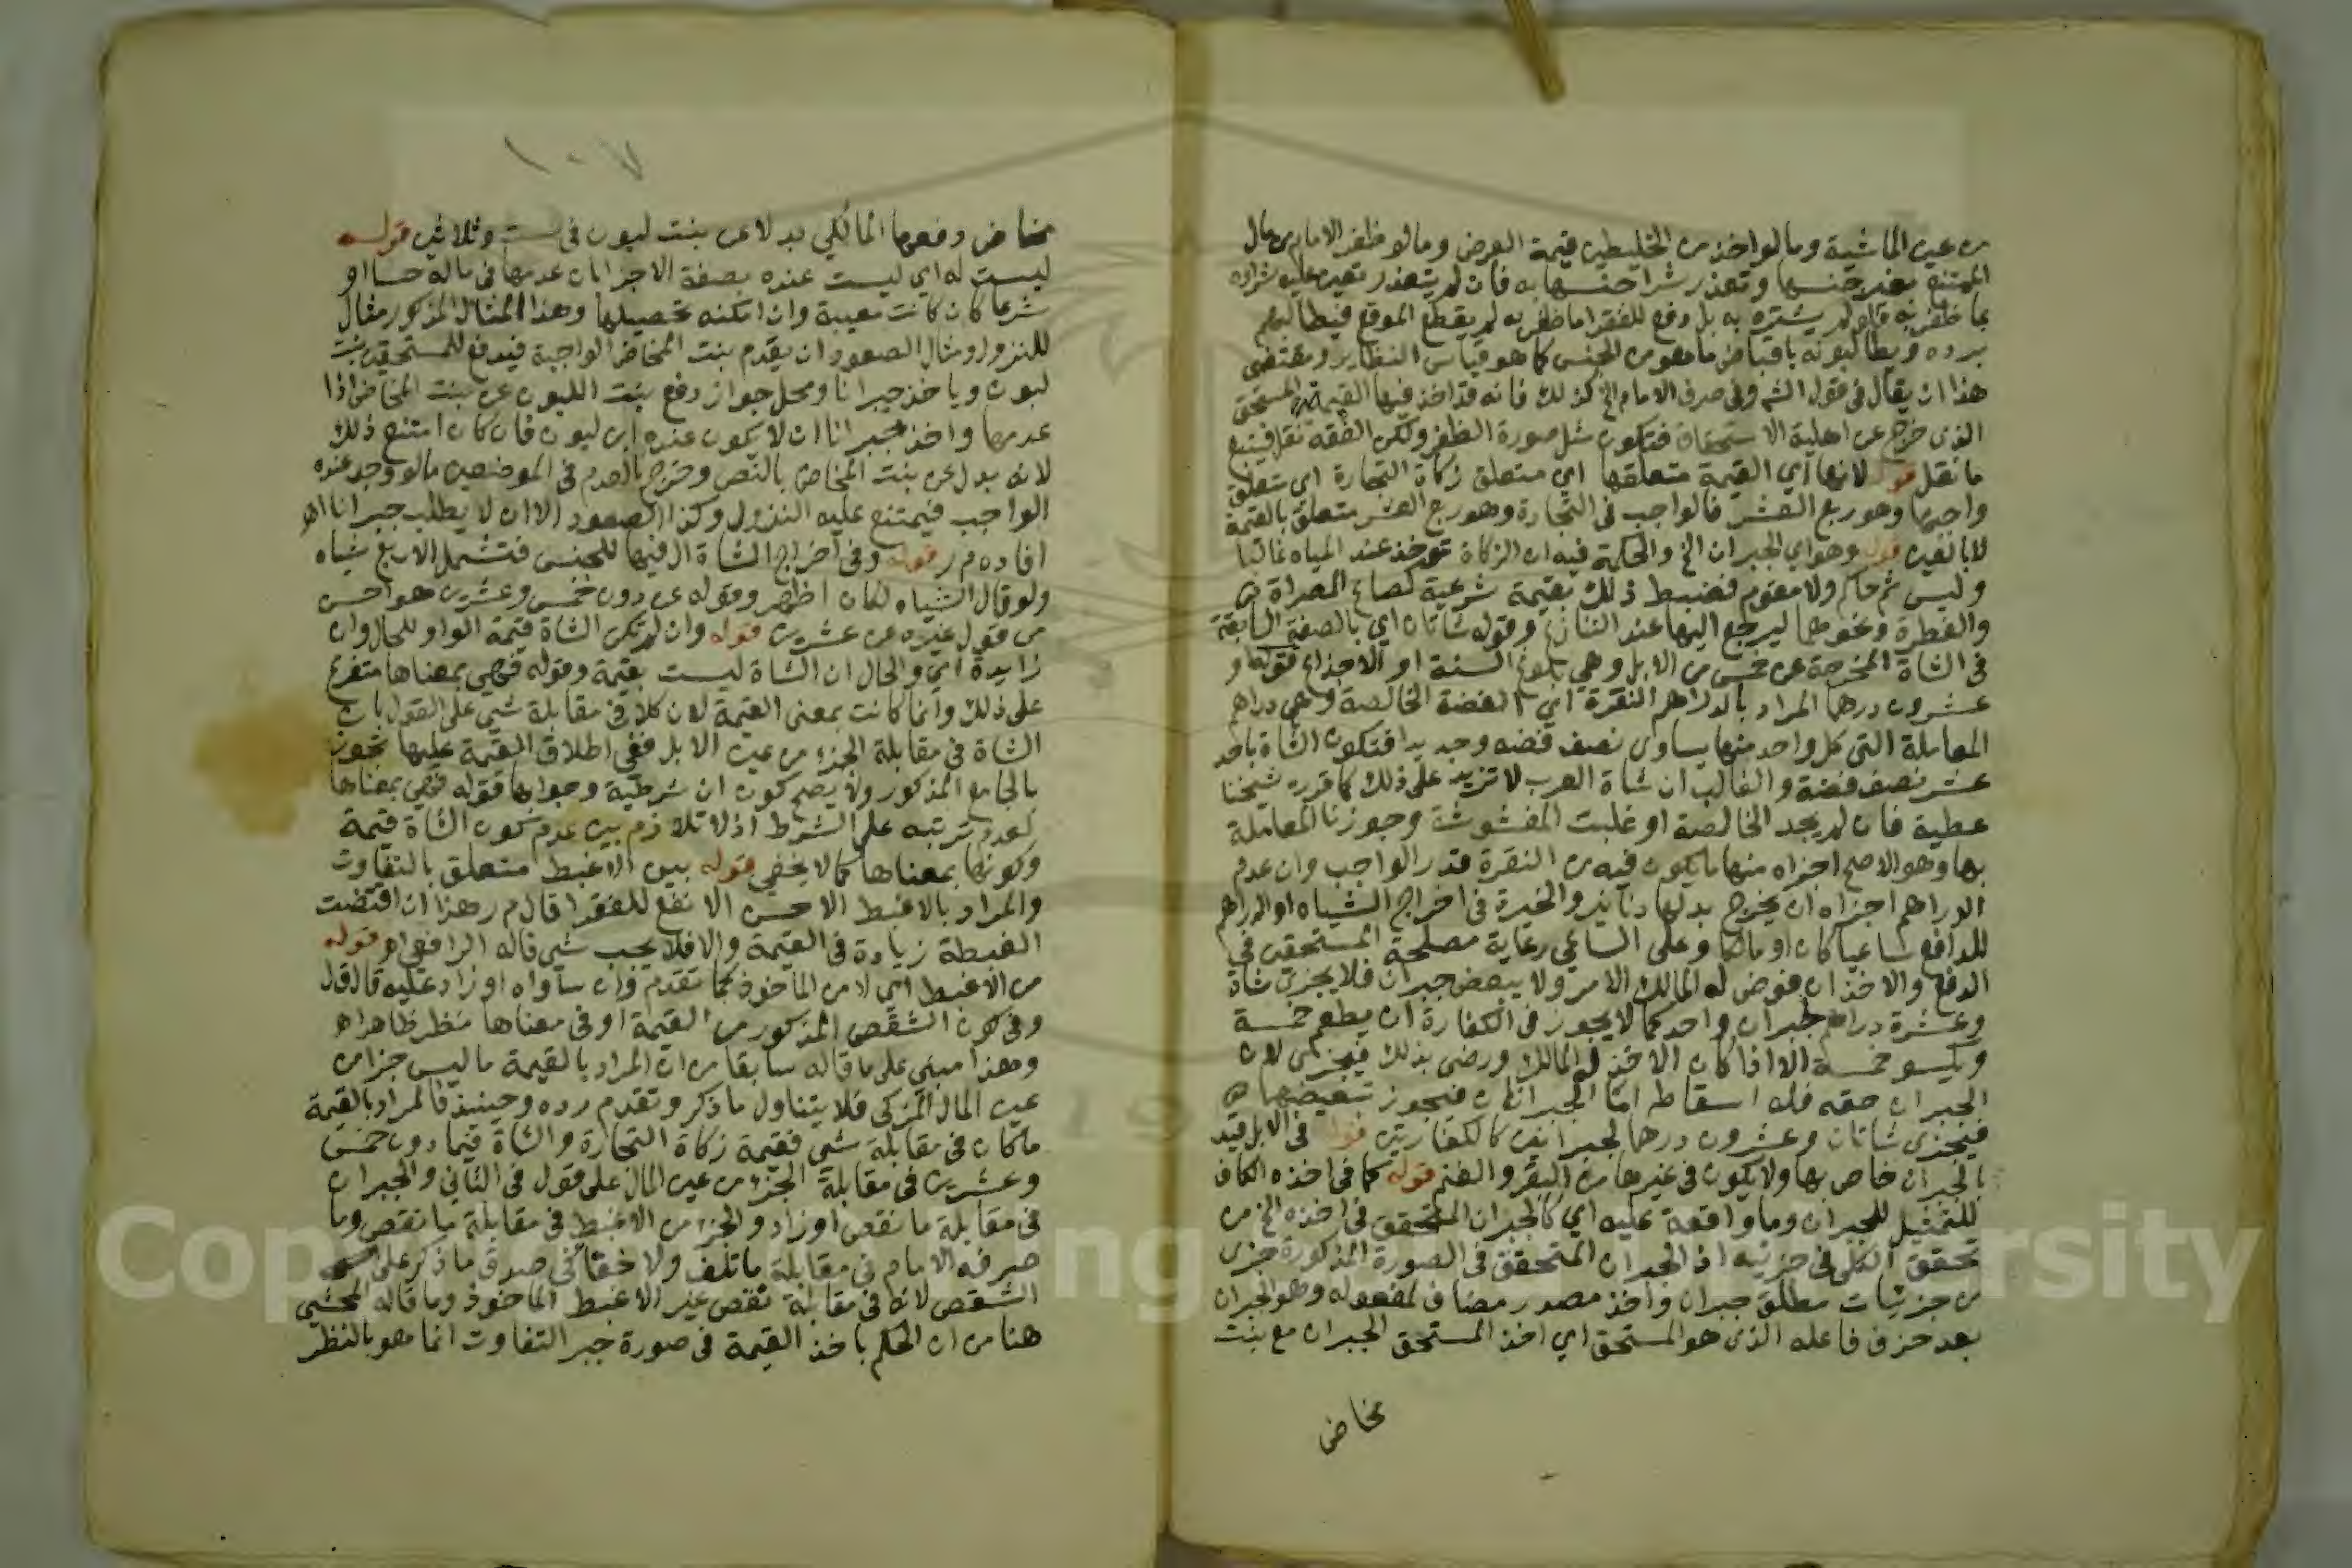 من عين الماشية وما لو اخذ من الخليطين قيمة الفرض وما لو ظفر الامام من مال
الممتنع بغير جنسها وتعذر شرا جنسها به فان لم يتعذر تعين عليه شراؤه
بما ظفر به فلو لم يشتره به بل دفع للفقرا ما ظفر به لم يقطع الموقع فيطالبهم
برده ويطالبونه باقباض ما هو من الجنس كما هو قياس النظاير ومقتضى
هذا ان يقال في قول الشم وفي صرف الامام الخ كذلك فانه قد اخذ فيها القيمة المستحق
الذي خرج عن اهلية الاستحقاق فتكون مثل صورة الظفر ولكن الفقه نقل فيتبع
ما نقل قوله لانها اي القيمة متعلقها اي متعلق زكاة التجارة اي متعلق
واجبها وهو ربع العشر فالواجب في التجارة وهو ربع العشر متعلق بالقيمة
لا بالعين قوله وهو اي الجبران الخ والحكمة فيه ان الزكاة توخذ عند المياه غالبا
وليس ثم حاكم ولا مقوم فضبط ذلك بقيمة شرعية كصاع المصراة
والفطرة ونحوهما ليرجع اليها عند التنازع وقوله شاتان اي بالصفة السابقة
في الشاة المخرجة عن خمس من الابل وهي بلوغ السنة او الاجذاع قوله او
عشرون درهما المراد بالدراهم النقرة اي الفضة الخالصة وهي دراهم
المعاملة التي كل واحد منها يساوي نصف فضه وجديدا فتكون الشاة باحد
عشر نصف فضة والغالب ان شاة العرب لا تزيد على ذلك كما قرره شيخنا
عطية فان لم يجد الخالصة او غلبت المغشوشة وجوزنا المعاملة
بها وهو الاصح اجزاه منها ما يكون فيه من النقرة قدر الواجب وان عدم
الدراهم اجزاه ان يخرج بدلها دنانير والخيرة في اخراج الشياه او الدراهم
للدافع ساعيا كان او مالكا وعلى الساعي رعاية مصلحة المستحقين في
الدفع والاخذ ان فوض له المالك الامر ولا يبعض جبران فلا يجزئ شاة
وعشرة دراهم لجبران واحد كما لا يجوز في الكفارة ان يطعم خمسة
ويكسو خمسة الا اذا كان الاخذ له المالك ورضى بذلك فيجزئ لان
الجبران حقه فله اسقاطه اما الجبرانان فيجوز تبعيضهما
فيجزى شاتان وعشرون درهما لجبرانين كالكفارتين قوله في الابل قيد
بالجبران خاص بها ولا يكون في غيرها من البقر والغنم قوله كما في اخذه الكاف
للتمثيل للجبران وما واقعة عليه اي كالجبران المتحقق في اخذه الخ من
تحقق الكلي في جزئيه اذ الجبران المتحقق في الصورة المذكورة جزئ
من جزئيات مطلق جبران واخذ مصدر مضاف لمفعوله وهو الجبران
بعد حذف فاعله الذي هو المستحق اي اخذ المستحق الجبران مع بنت
مخاض
١٠٧
مخاض دفعها المالكي بدلا عن بنت لبون في ست وثلاثين قوله
ليست له اي ليست عنده بصفة الاجزا بان عدمها في ماله حسا او
شرعا كان كانت معيبة وان امكنه تحصيلها وهذا المثال المذكور مثال
للنزول ومثال الصعود ان يعدم بنت المخاض الواجبة فيدفع للمستحقين بنت
لبون وياخذ جبرانا ومحل جواز دفع بنت اللبون عن بنت المخاض اذا
عدمها واخذ جبرانا ان لا يكون عنده ابن لبون فان كان امتنع ذلك
لانه بدل عن بنت المخاض بالنص وخرج بالعدم في الموضعين ما لو وجد عنده
الواجب فيمتنع عليه النزول وكذا الصعود الا ان لا يطلب جبرانا اهـ
افاده م ر قوله وفي اخراج الشاة ال فيها للجنس فتشمل الاربع شياه
ولو قال الشياه لكان اظهر وقوله عن دون خمس وعشرين هو احسن
من قول غيره عن عشرين قوله وان لم تكن الشاة قيمة الواو للحال وان
زايدة اي والحال ان الشاة ليست بقيمة وقوله فهي بمعناها متفرع
على ذلك وانما كانت بمعنى القيمة لان كلا في مقابلة شي على القول بان
الشاة في مقابلة الجزء من عين الابل ففي اطلاق القيمة عليها تجوز
بالجامع المذكور ولا يصح كون ان شرطية وجوابها قوله فهي بمعناها
لعدم ترتبه على الشرط اذ لا تلازم بين عدم كون الشاة قيمة
وكونها بمعناها كما لا يخفى قوله بين الاغبط متعلق بالتفاوت
والمراد بالاغبط الاحسن الانفع للفقرا قال م ر هذا ان اقتضت
الغبطة زيادة في القيمة والا فلا يجب شي قاله الرافعي اهـ قوله
من الاغبط اي لا من الماخوذ كما تقدم وان ساواه او زاد عليه قال ق ل
وفي كون الشقص المذكور من القيمة او في معناها نظر ظاهر اهـ
وهذا مبني على ما قاله سابقا من ان المراد بالقيمة ما ليس جزا من
عين المال المزكى فلا يتناول ما ذكر وتقدم رده وحينئذ فالمراد بالقيمة
ما كان في مقابلة شي فقيمة زكاة التجارة والشاة فيما دون خمس
وعشرين في مقابلة الجزء من عين المال على قول في الثاني والجبران
في مقابلة ما نقص او زاد والجزء من الاغبط في مقابلة ما نقص وما
صرفه الامام في مقابلة ما تلف ولا خفا في صدق ما ذكر على
الشقص لانه في مقابلة نقص غير الاغبط الماخوذ وما قاله المحشي
هنا من ان الحكم باخذ القيمة في صورة جبر التفاوت انما هو بالنظر